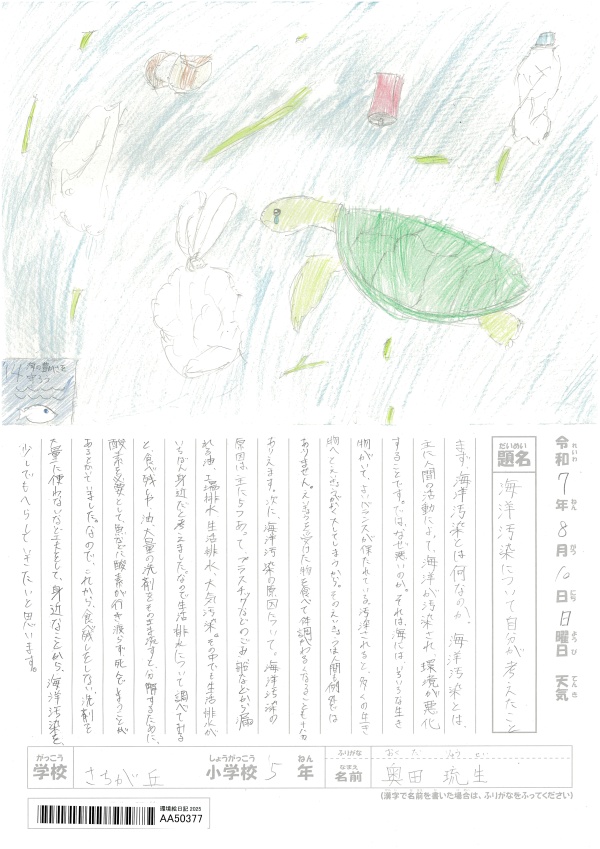 14 海の豊かさを
守ろう
令和7年8月10日日曜日 天気
れいわ ねん がつ にち ようび てんき
だいめい
題名
海洋汚染について自分が考えたこと
まず、海洋汚染とは何なのか。海洋汚染とは、
主に人間の活動によって、海洋が汚染され、環境が悪化
することです。では、なぜ悪いのか。それは、海には、いろいろな生き
物がいて、バランスが保たれている。汚染されると、多くの生き
物へとえいきょうがおよんで
ありません。えいきょうを受けた物を食べて体調がわるくなることも十分
ありえます。次に、海洋汚染の原因について。海洋汚染の
原因は主に5つあって、プラスチックなどのごみ、船などから漏
れる油、工場排水、生活排水、大気汚染。その中でも生活排水が
いちばん身近だと考えました。なので生活排水について調べてみる
と、食べ残しや油、大量の洗剤をそのまま流すと、分解するために、
酸素を必要として、魚などに酸素が行き渡らず死んでしまうことが
あるとかいていました。なので、これから、食べ残しをしない、洗剤を
大量に使わないなど工夫をして、身近なことから、海洋汚染を、
少しでもへらしていきたいと思います。
がっこう しょうがっこう ねん ふりがな おくだ りゅうせい
学校 さちが丘 小学校 5年 なまえ 名前 奥田 琉生
(漢字で名前を書いた場合は、ふりがなをふってください)
環境絵日記 2025
AA50377